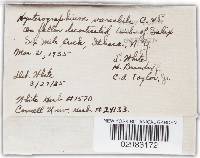 Hysterographium variabile, C. & P.
on fallen decorticated limbs of Salix
Six mile Creek, Ithaca, N.Y.
Mar. 21, 1935
J. White
H. Brandriff
C.A. Taylor, Jr.
Det. White
3/27/35
White Herb. #1570
Cornell Univ. herb. # 24133.
NEW YORK BOTANICAL GARDEN
02183172